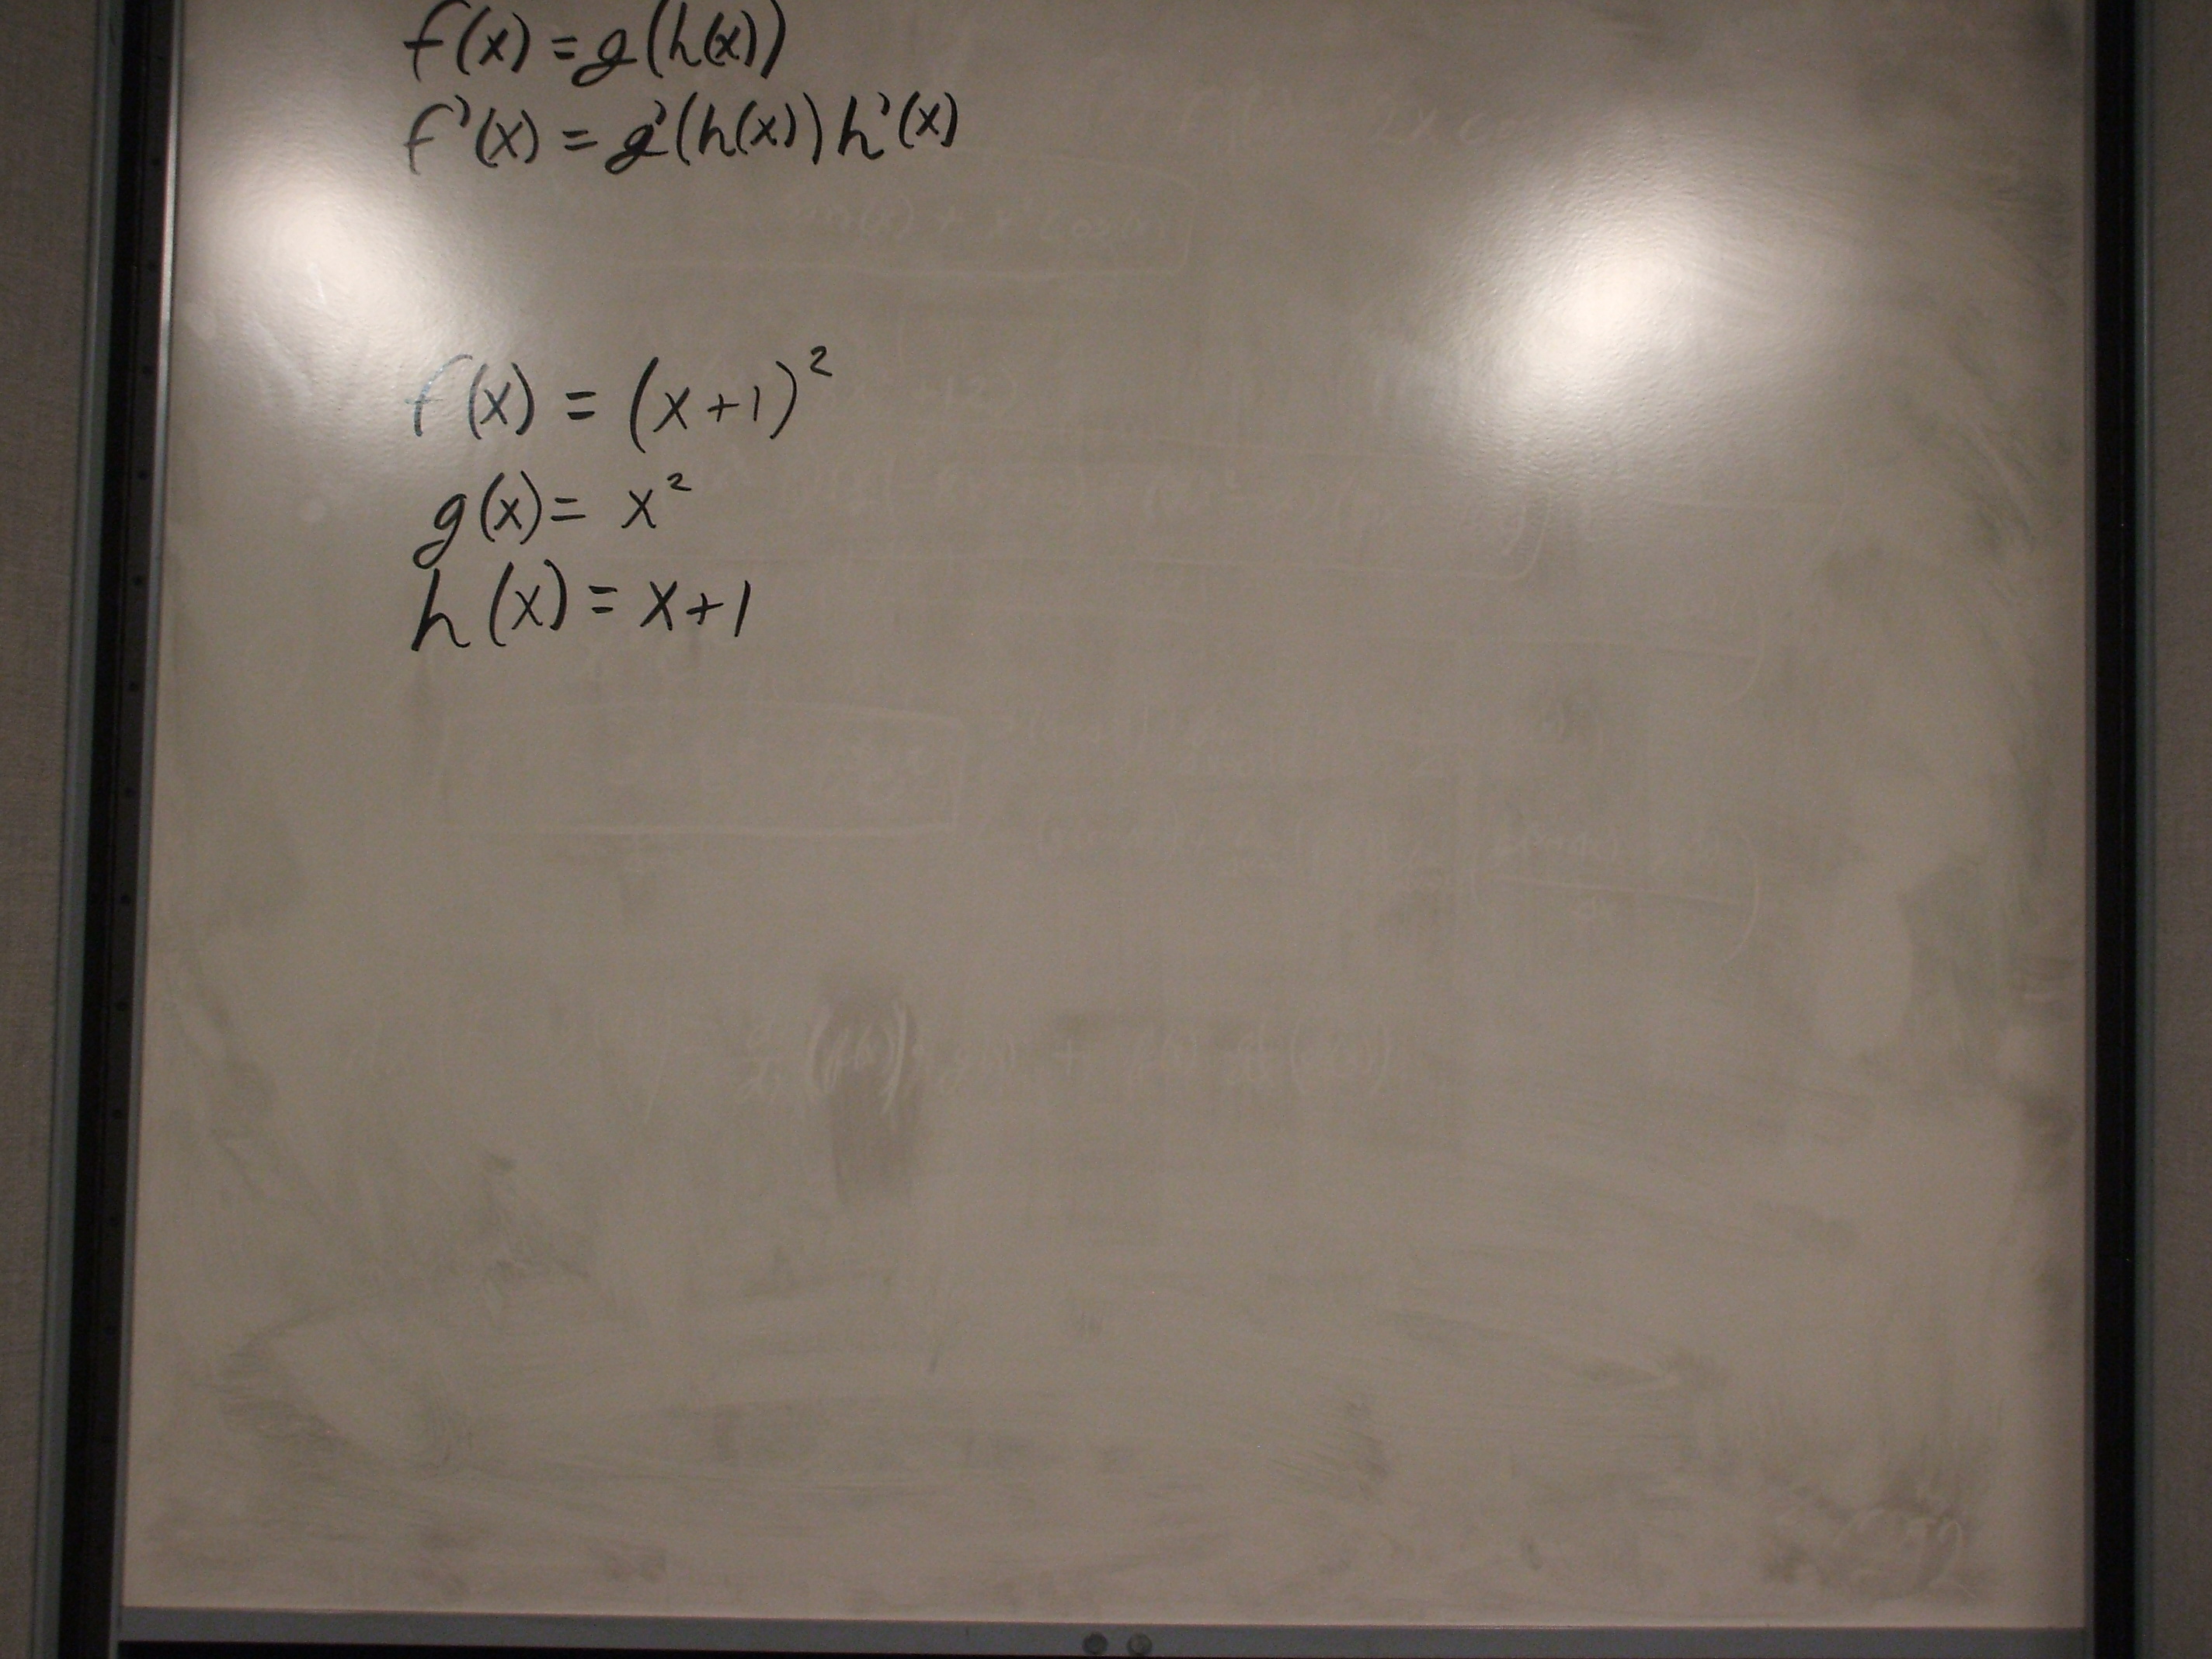 f(x) = g(h(x))
f'(x) = g'(h(x)) h'(x)
f(x) = (x+1)²
g(x) = x²
h(x) = x+1